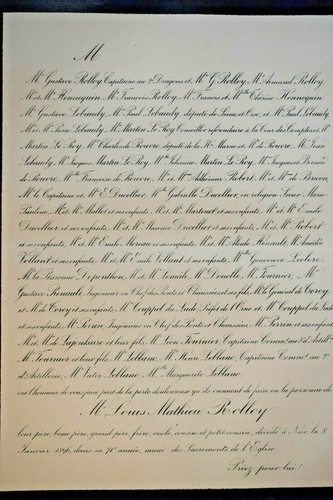 M
Mr Gustave Rolloy Capitaine au 2e Dragons et Me G. Rolloy, Mr Armand Rolloy,
Mr et Me Hennequin, Mr François Rolloy, Mr Francis et Mlle Thérèse Hennequin
Mr Gustave Lebaudy, Mr Paul Lebaudy, député de Seine et Oise, et Me Paul Lebaudy,
Mr et Me Pierre Lebaudy, Mr Martin Le Roy Conseiller référendaire à la Cour des Comptes et Me
Martin Le Roy, Mr Charles de Rouvre, député de la Hte Marne et Me de Rouvre, Mr Jean
Lebaudy, Mr Jacques Martin Le Roy, Mlle Martin Le Roy, Mrs Jacques et Bernard
de Rouvre, Mlle Françoise de Rouvre, Mr et Me Robert, Mr et Me de Brecon,
Mr le Capitaine et Me E. Ducellier, Mlle Gabrielle Ducellier, en religion Sœur Marie
Pauline, Mr et Me Mallet et ses enfants, Mr et Me Martinet et ses enfants, Mr et Me Emile
Ducellier et ses enfants, Mr et Me Maurice Ducellier et ses enfants, Mr et Me Robert
et ses enfants, Mr et Me Emile Moreau et ses enfants, Mr et Me Alcide Hénault, Mr Amédée
Vollant et ses enfants, Mr et Me Emile Vollant et ses enfants, Mlle Geneviève Leclerc,
Me la Baronne Deponthon, Mr et Me Lemoile, Me Denelle, Me Fournier, Mr
Gustave Renault, Ingénieur en Chef des Ponts et Chaussées et ses fils, Mr le Général de Corcy
et Me de Corcy et ses enfants, Mr Couppel du Lude Préfet de l'Orne et Me Couppel du Lude
et ses enfants, Mr Perrin Ingénieur en Chef des Ponts et Chaussées, Me Perrin et ses enfants,
Mr et Me de Lajonkaire et leur fils, Mr Léon Fournier Capitaine Commt au 5e d'Artie
Me Fournier et leur fils, Me Leblanc, Mr Henri Leblanc, Capitaine Commt au 2e
d'Artillerie, Mr Victor Leblanc, Mlle Marguerite Leblanc
ont l'honneur de vous faire part de la perte douloureuse qu'ils viennent de faire en la personne de
Mr Louis Mathieu Rolloy
leur père, beau père, grand père, frère, oncle, cousin et petit cousin, décédé à Nice le 8
Janvier 1896, dans sa 71e année, muni des Sacrements de l'Eglise
Priez pour lui!